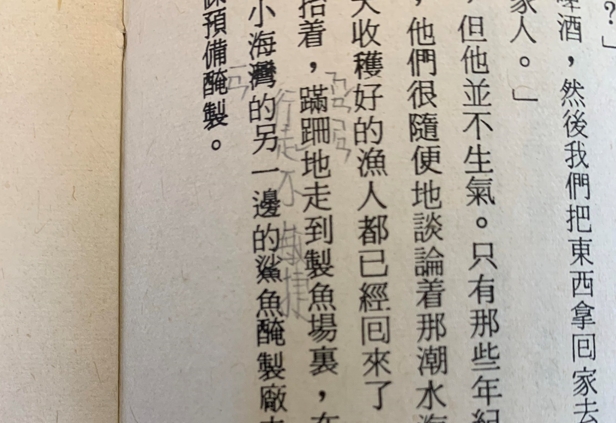 ？」
啤酒，然後我們把東西拿回家去
家人。」
，但他並不生氣。只有那些年紀
，他們很隨便地談論着那潮水
收穫好的漁人都已經回來了
抬着，蹣跚地走到製魚場裏，在
行走不
小海灣的另一邊的鯊魚醃製廠
預備醃製。